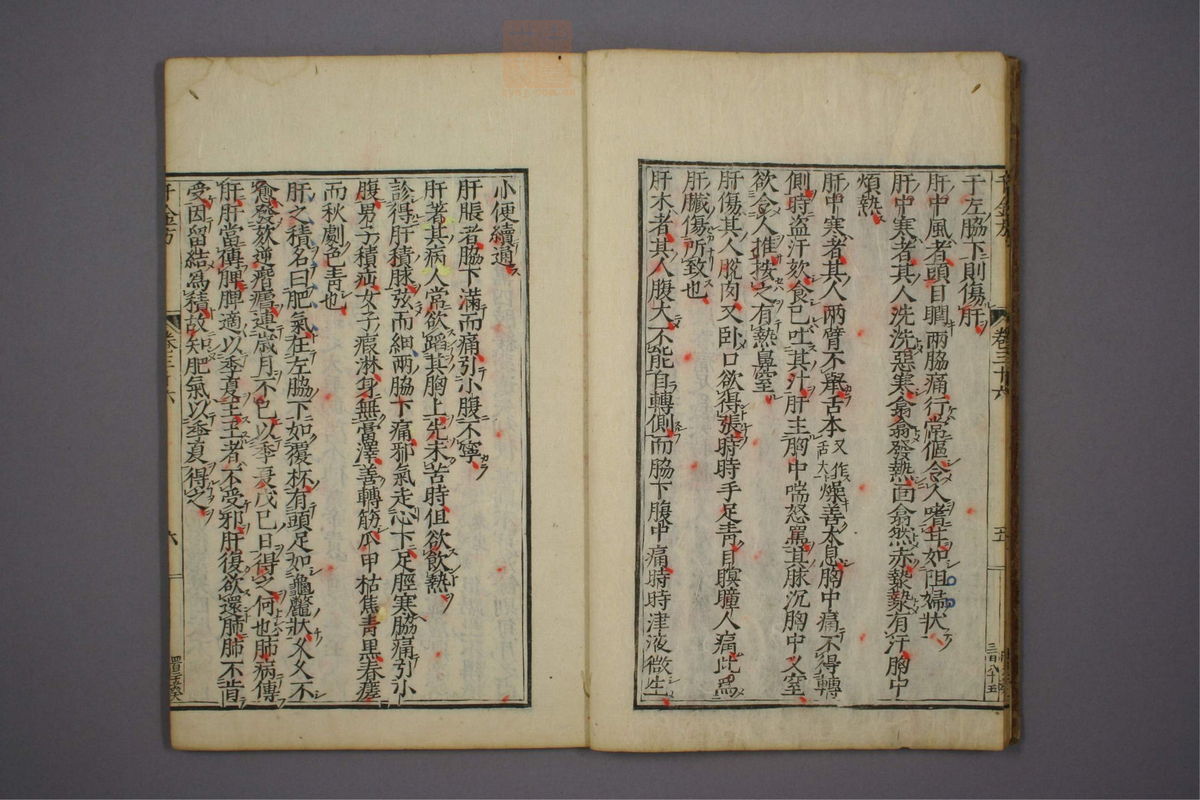 于左脇下則傷肝
肝中風者頭目瞤兩脇痛行常傴令人嗜甘如阻婦狀
肝中寒者其人洗洗惡寒翕翕發熱面翕然赤漐漐有汗胸中
煩熱
肝中寒者其人兩臂不舉舌本又作舌大燥善太息胸中痛不得轉
側時盜汗欬食已吐其汁肝主胸中喘怒罵其脉沉胸中又窒
欲令人推按之有熱鼻窒
肝傷其人脫肉又臥口欲得張時時手足青目瞑瞳人痛此爲
肝臟傷所致也
肝水者其人腹大不能自轉側而脇下腹中痛時時津液微生
小便續通
肝脹者脇下滿而痛引小腹不寧
肝著其病人常欲蹈其胸上先未苦時但欲飲熱
診得肝積脉弦而細兩脇下痛邪氣走心下足脛寒脇痛引小
腹男子積疝女子瘕淋身無膏澤善轉筋爪甲枯焦青黒春瘥
而秋劇色青也
肝之積名曰肥氣在左脇下如覆杯有頭足如龜鼈狀久久不
愈發欬逆㾬瘧連歲月不已以季夏戊己日得之何也肺病傳
肝肝當傳脾脾適以季夏王王者不受邪肝復欲還肺肺不肯
受因留結爲積故知肥氣以季夏得之
卷三十六
五
六